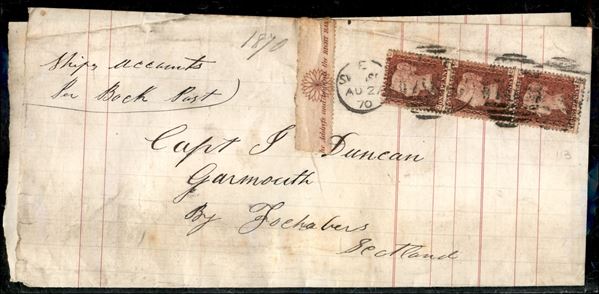 1870
Ships accounts
Per Book Post
AU 2
70
Capt J Duncan
Garmouth
By Fochabers
Scotland
113